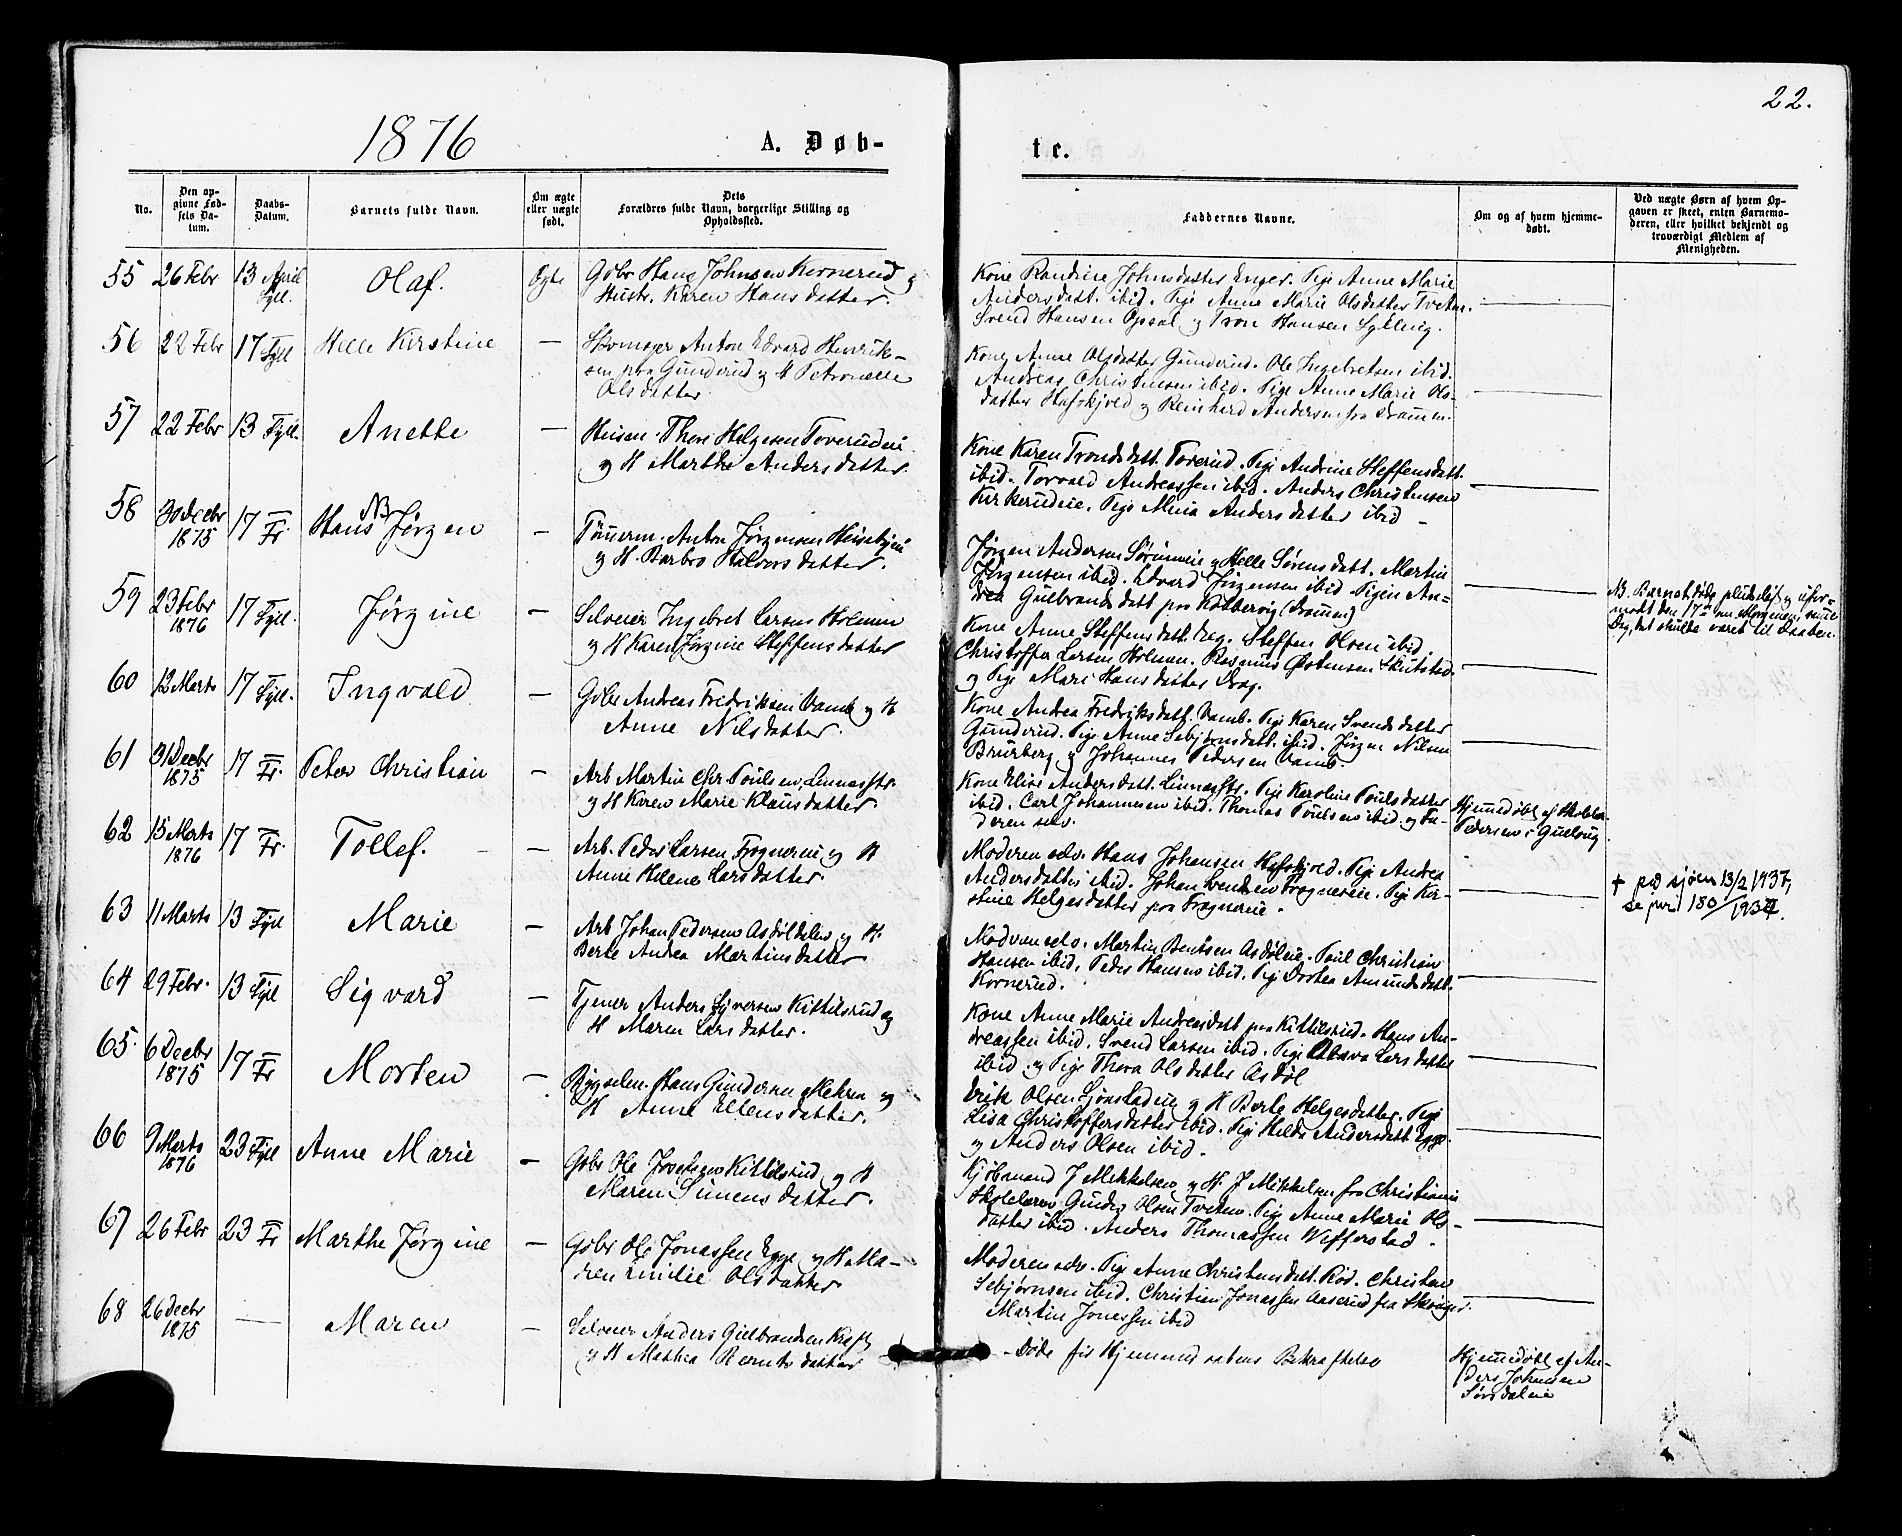 22.
1876
A. Døb-
te.
No.
Den op-
givne Fød-
sels Da-
tum.
Daabs-
Datum.
Barnets fulde Navn.
Om ægte
eller uægte
født.
Dets
Forældres fulde Navn, borgerlige Stilling og
Opholdssted.
Faddernes Navne.
Om og af hvem hjemme-
døbt.
Ved uægte Børn af hvem Op-
gaven er skeet, enten Barnemo-
deren, eller hvilket bekjendt og
troværdigt Medlem af
Menigheden.
55
26 Febr
13 April
Syll.
Olaf.
Ægte
Gbr Hans Johnsen Kornerud og
Hustr. Karen Hansdatter.
Kone Randine Johnsdatter Enger. Pige Anne Marie
Andersdatt. ibid. Pige Anne Marie Olsdatter Tveten.
Svend Hansen Opsal og Tron Hansen Sylling.
56
22 Febr
17 Syll
Helle Kirstine
—
Skomager Anton Edvard Henrik-
sen paa Gunderud og H Petronelle
Olsdatter.
Kone Anne Olsdatter Gunderud. Ole Ingebretsen ibid.
Andreas Christensen ibid. Pige Anne Marie Ols-
datter Hafskjold og Reinhard Andersen fra Dramm.
57
22 Febr
13 Syll.
Anette
—
Husm. Thore Helgesen Toverudeie
og H Marthe Andersdatter.
Kone Karen Tronsdatt. Toverud. Pige Andrine Steffensdatt.
ibid. Torvald Andreassen ibid. Anders Christensen
Kirkerudeie. Pige Mina Andersdatter ibid —
58
30 Decbr
1875
17 Fr
NB
Hans Jørgen
—
Tømmerm. Anton Jørgensen
og H. Barbro Halvorsdatter.
Jørgen Andersen og Helle Sørensdatt. Martin
Jørgensen ibid. Edvard Jørgensen ibid. Pigen An-
drea Gulbrandsdatt paa (Dramen)
NB. Barnet døde pludseligt og ufor-
modet den 17de om Morgenen, samme
Dag, det skulde været til Daaben.
59
23 Febr
1876
17 Syll.
Jørgine
—
Selveier Ingebret Larsen Holman
og H Karen Jørgine Steffensdatter
Kone Anne Steffensdatt. Drag. Steffen Olsen ibid.
Christoffer Larsen Holman. Rasmus Østensen Skutstad.
og Pige Mari Hansdatter Drag.
60
12 Marts
17 Syll.
Ingvald
—
Gbr Andreas Fredriksen Vamb og H
Anne Nilsdatter.
Kone Andrea Fredriksdatt. Vamb. Pige Karen Svendsdatter
Gunderud. Pige Anne Sebjørnsdatt. ibid. Jørgen Nilsen
Brurberg og Johannes Pedersen Vamb.
61
31 Decbr
1875
17 Fr.
Peter Christian
—
Arb Martin Chr. Poulsen,
og H Karen Marie Klausdatter
Kone Elise Andersdatt. Pige Karoline Poulsdatter
ibid. Carl Johannesen ibid. Thomas Poulsen ibid. og Fa-
deren selv.
Hjemmedøbt af
Pedersen i Gullaug
62
15 Marts
1876
17 Fr.
Tollef.
—
Arb. Peder Larsen Frognereie og H
Anne Helene Larsdatter.
Moderen selv. Hans Johansen Hafskjold. Pige Andrea
Andersdatter ibid. Johan Svendsen Frognereie. Pige Kir-
stine Helgesdatter paa Frognereie.
† på sjøen 13/2 1937,
se jnr 180/1937.
63
11 Marts
13 Syll
Marie
—
Arb Johan Pedersen Asdøldalen og H.
Berte Andrea Martinsdatter
Moderen selv. Martin Bentsen Asdøleie. Paul Christian
Hansen ibid. Peder Hansen ibid. Pige Dortea Amundsdatt.
Kornerud.
64
29 Febr.
13 Syll
Sigvard
—
Tjener Anders Syversen Kittilsrud og
H Maren Larsdatter.
Kone Anne Marie Andreasdatt paa Kittilsrud. Hans An-
dreassen ibid. Svend Larsen ibid. Pige Larsdatter
ibid. og Pige Thora Olsdatter Asdøl
65.
6 Decbr
1875
17 Fr
Morten
—
Hans Gundersen Mehren og
H Anne Ellensdatter.
Erik Olsen og H Berte Helgesdatter. Pige
Lisa Christoffersdatter ibid. Pige Helde Andersdatt Egge.
og Anders Olsen ibid.
66
9 Marts
1876
23 Syll
Anne Marie
—
Gbr Ole Kittilsrud og H
Maren Simensdatter.
Kjøbmand J Mikkelsen og H. J Mikkelsen fra Christiania
Skolelærer Gunder Olsen Tveten. Pige Anne Marie Ols-
datter ibid. Anders Thomassen Wefferstad.
67
26 Febr
23 Fr
Marthe Jørgine
—
Gbr Ole Jonassen Egge og H. Ma-
ren Emilie Olsdatter
Moderen selv. Pige Anne Christensdatt. Rød. Christen
Sebjørnsen ibid. Christian Jonassen Aaserud fra
Martin Jonassen ibid
68
26 Decbr
1875
—
Maren
—
Selveier Anders Gulbrandsen Kraft
og H Mathea Berntsdatter
- Døde før Hjemmedaabens Bekræftelse
Hjemmedøbt af An-
ders Johansen
Sørsdaleie